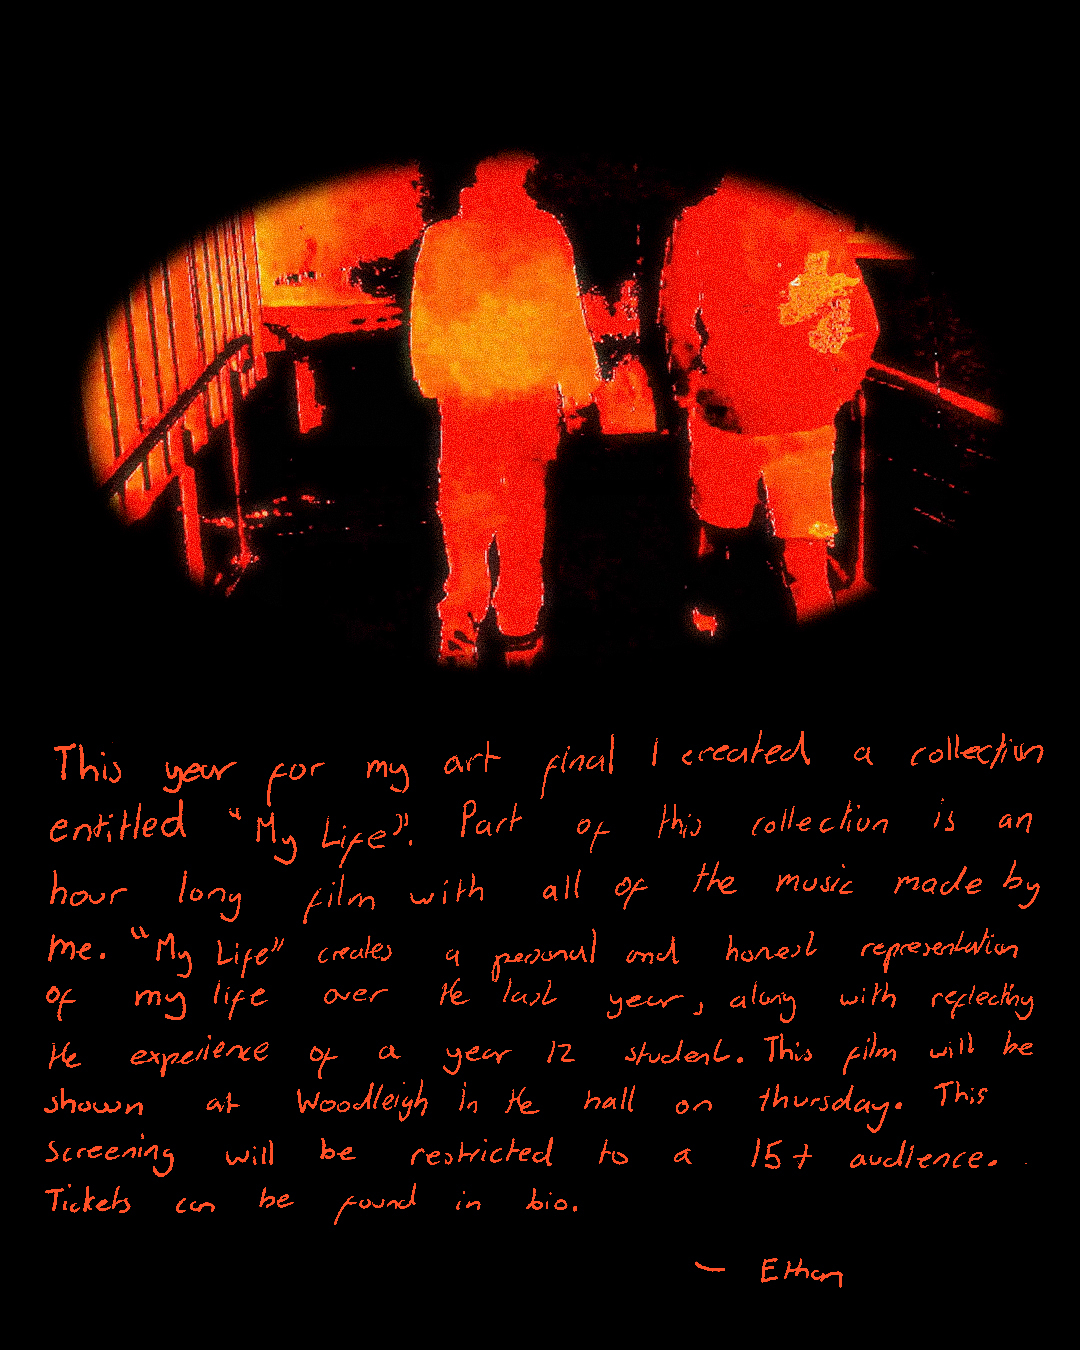 This year for my art final I created a collection
entitled "My Life". Part of this collection is an
hour long film with all of the music made by
me. "My Life" creates a personal and honest representation
of my life over the last year, along with reflecting
the experience of a year 12 student. This film will be
shown at Woodleigh in the hall on thursday. This
screening will be restricted to a 15+ audience.
Tickets can be found in bio.
— Ethan